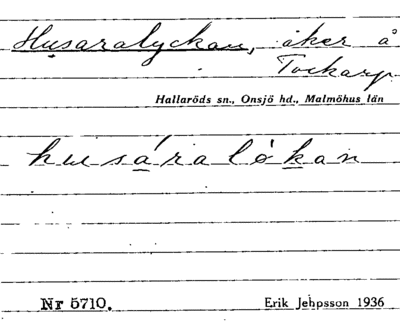 Husaralyckan, åker å
Tockarp
Hallaröds sn., Onsjö hd., Malmöhus län
husáralòkan
Nr 5710.
Erik Jeppsson 1936